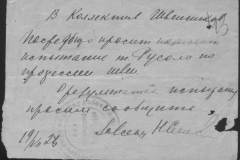 В Коллектив Швейников
Посредбюро просит
испытание т. Русола по
профессии швеи
О результатах испытания
просим сообщить
19/VI 28